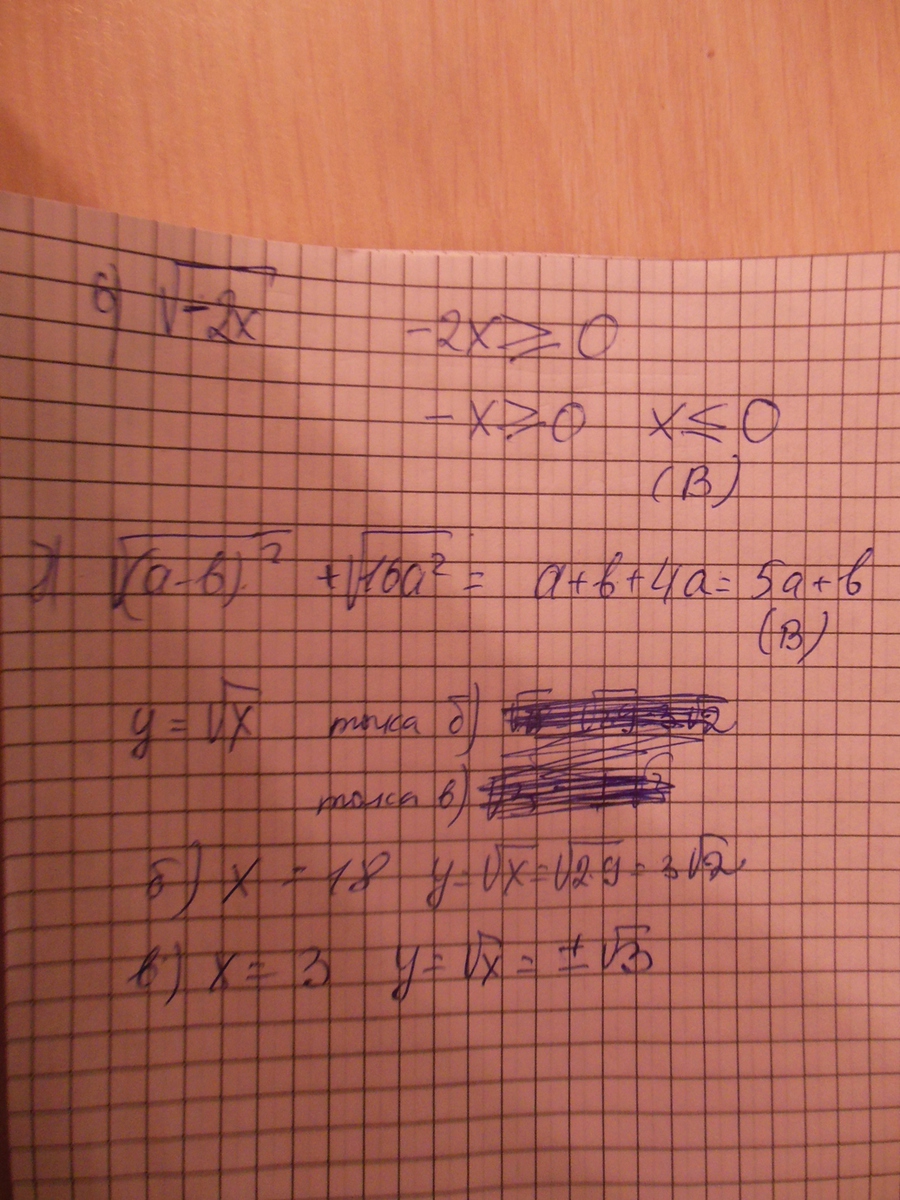 6) √-2x -2x ≥ 0
-x ≥ 0 x ≤ 0
(В)
7) √(a-b)² + √16a² = a+b+4a = 5a+b
(В)
y = √x точка б)
точка в)
б) x = 18 y = √x = √2·9 = 3√2
в) x = 3 y = √x = ±√3